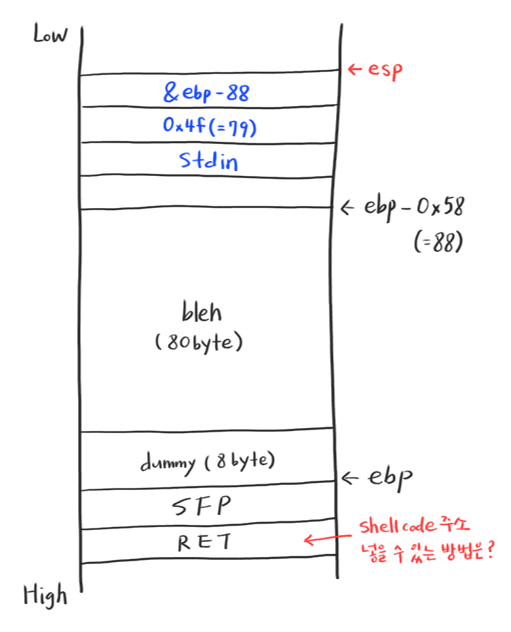 Low
← esp
&ebp-88
0x4f(=79)
Stdin
← ebp-0x58
(=88)
bleh
(80byte)
dummy (8byte)
← ebp
SFP
shellcode 주소
넣을 수 있는 방법은?
RET
High